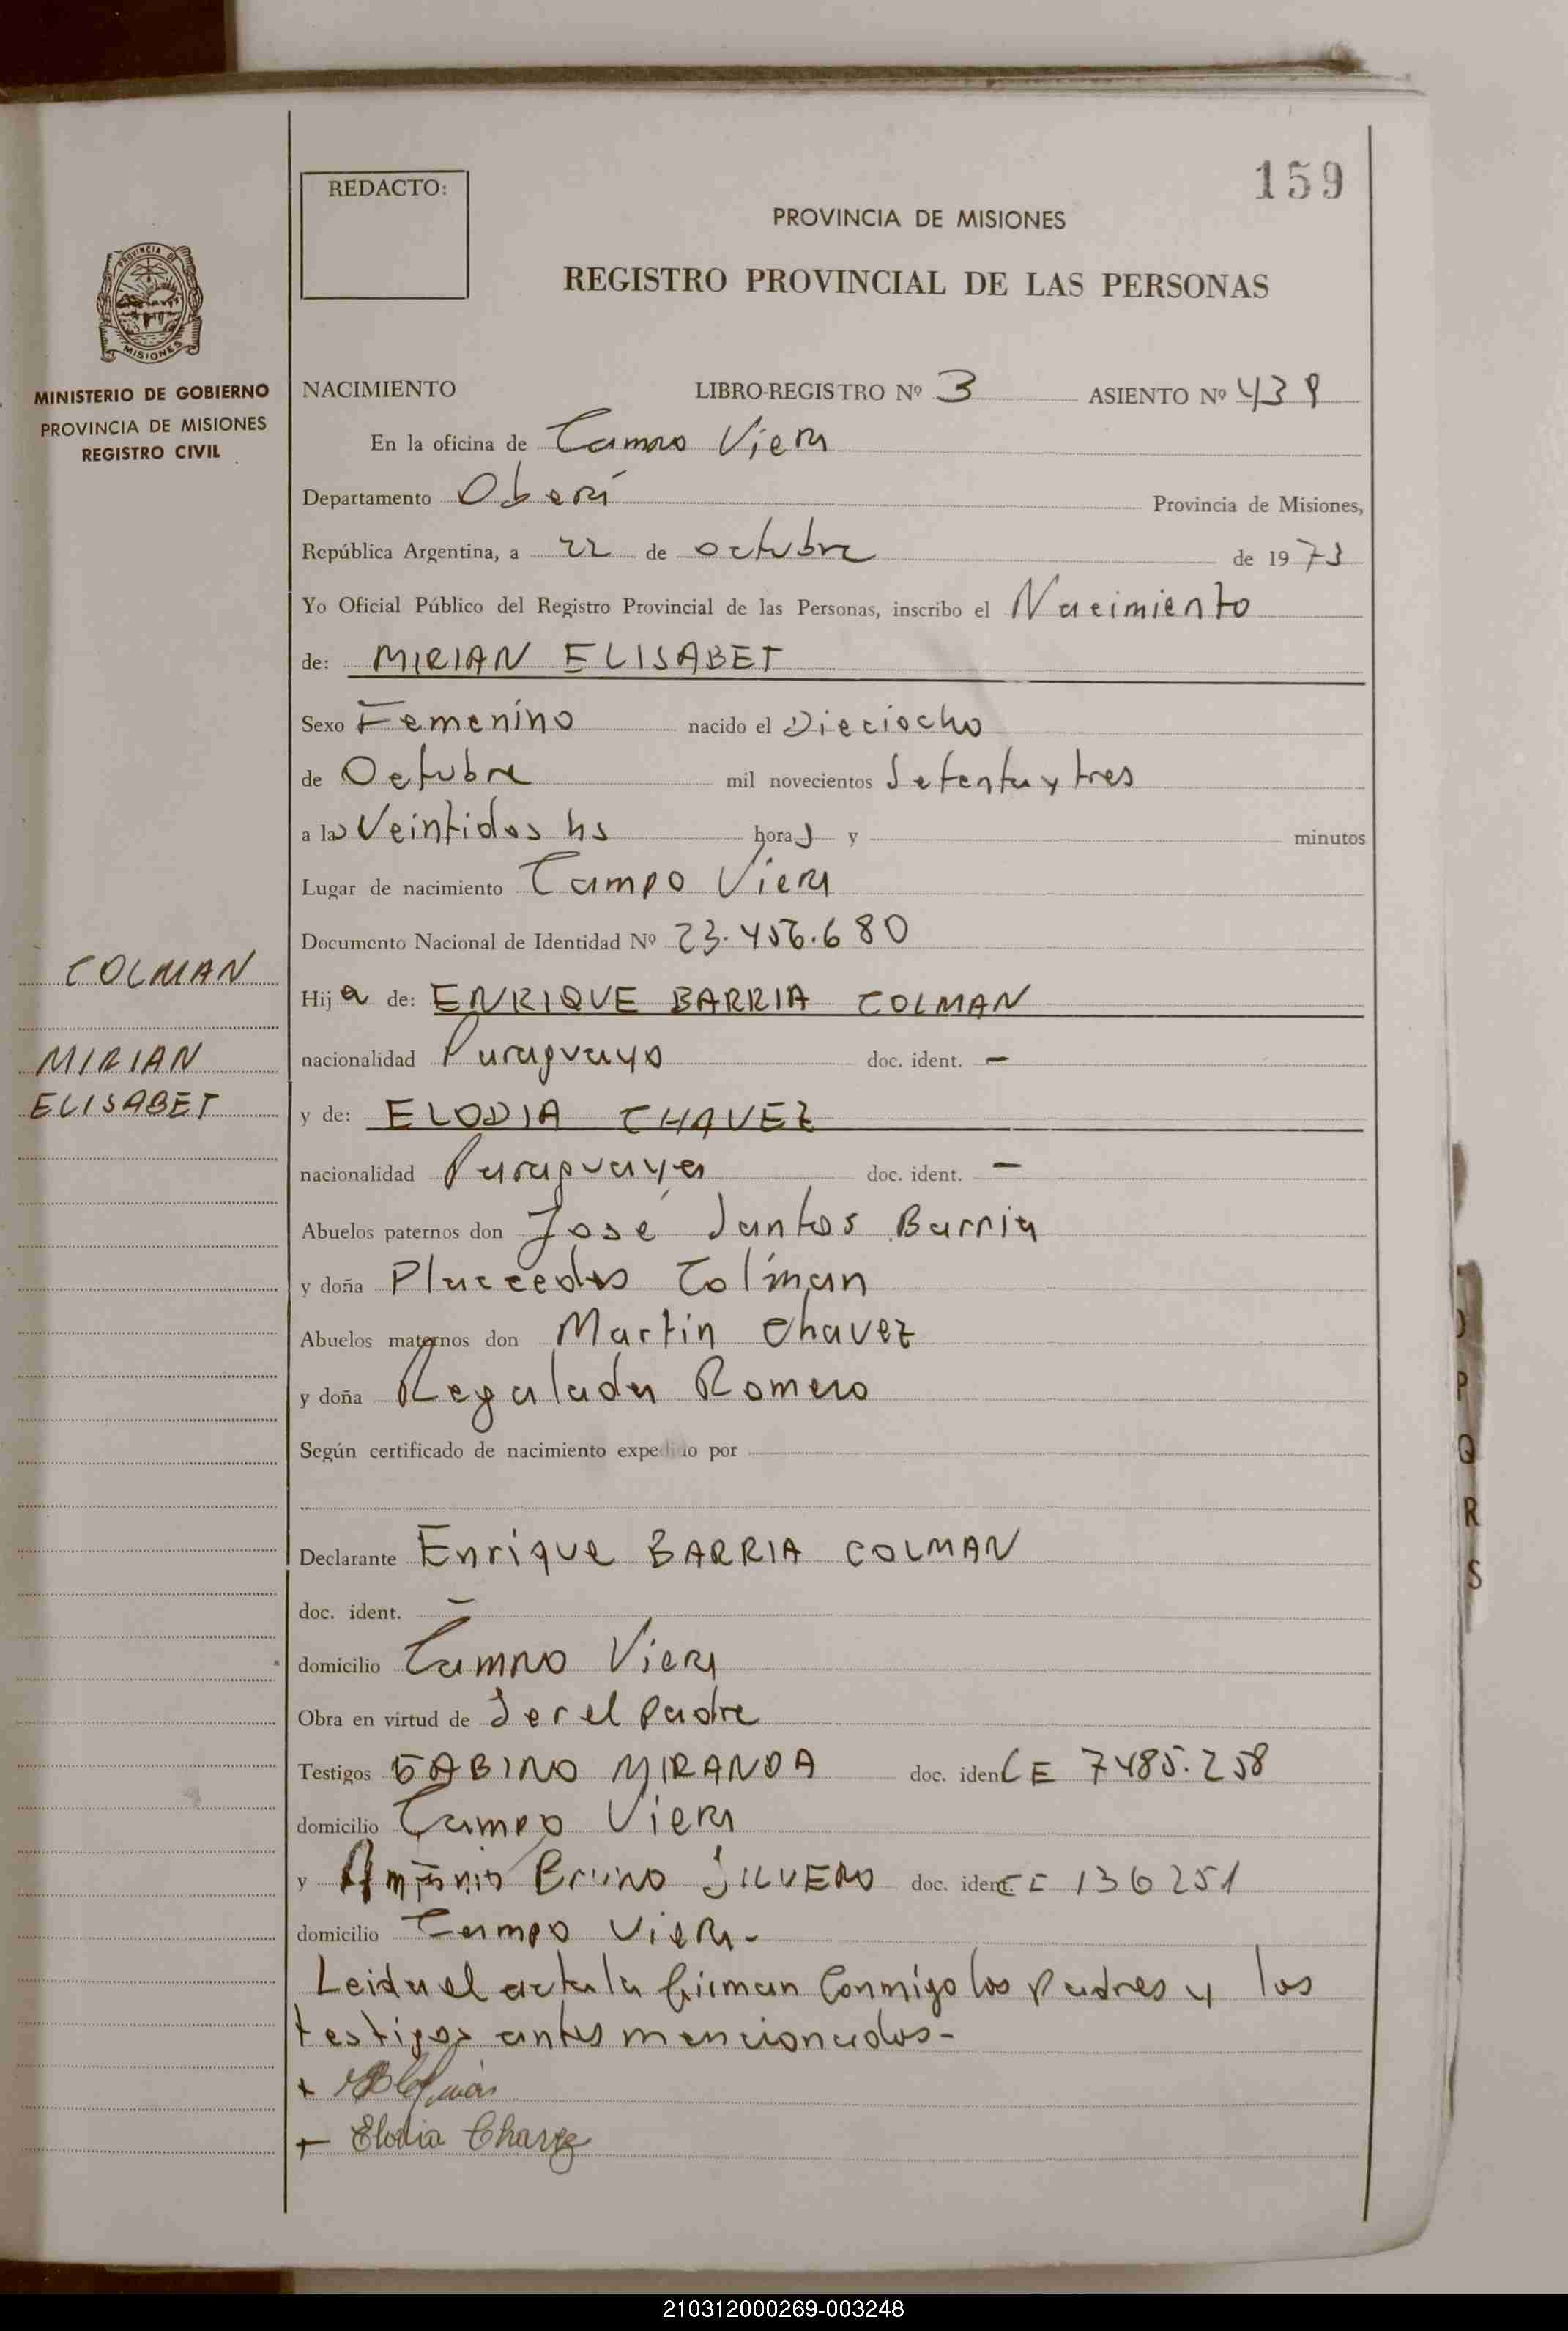 159
REDACTO:
PROVINCIA DE MISIONES
REGISTRO PROVINCIAL DE LAS PERSONAS
PROVINCIA DE MISIONES
MINISTERIO DE GOBIERNO
PROVINCIA DE MISIONES
REGISTRO CIVIL
NACIMIENTO LIBRO-REGISTRO Nº 3 ASIENTO Nº 439
En la oficina de Campo Viera
Departamento Oberá Provincia de Misiones,
República Argentina, a 22 de octubre de 1973
Yo Oficial Público del Registro Provincial de las Personas, inscribo el Nacimiento
de: MIRIAN ELISABET
Sexo Femenino nacido el Dieciocho
de Octubre mil novecientos Setenta y tres
a las Veintidos hs horas y minutos
Lugar de nacimiento Campo Viera
Documento Nacional de Identidad Nº 23.456.680
COLMAN
Hija de: ENRIQUE BARRIA COLMAN
MIRIAN
nacionalidad Paraguayo doc. ident. -
ELISABET
y de: ELODIA CHAVEZ
nacionalidad Paraguaya doc. ident. -
Abuelos paternos don José Santos Barria
y doña Colman
Abuelos maternos don Martin Chavez
y doña Regalada Romero
Según certificado de nacimiento expedido por
Declarante Enrique BARRIA COLMAN
doc. ident. -
domicilio Campo Viera
Obra en virtud de Ser el padre
Testigos GABINO MIRANDA doc. iden CE 7485.258
domicilio Campo Viera
y Antonio Bruno SILVERO doc. ident. CE 136251
domicilio Campo Viera-
Leida el acta la firman Conmigo los padres y los
testigos antes mencionados-
+ 
+ Elodia Chavez
P
Q
R
S
210312000269-003248